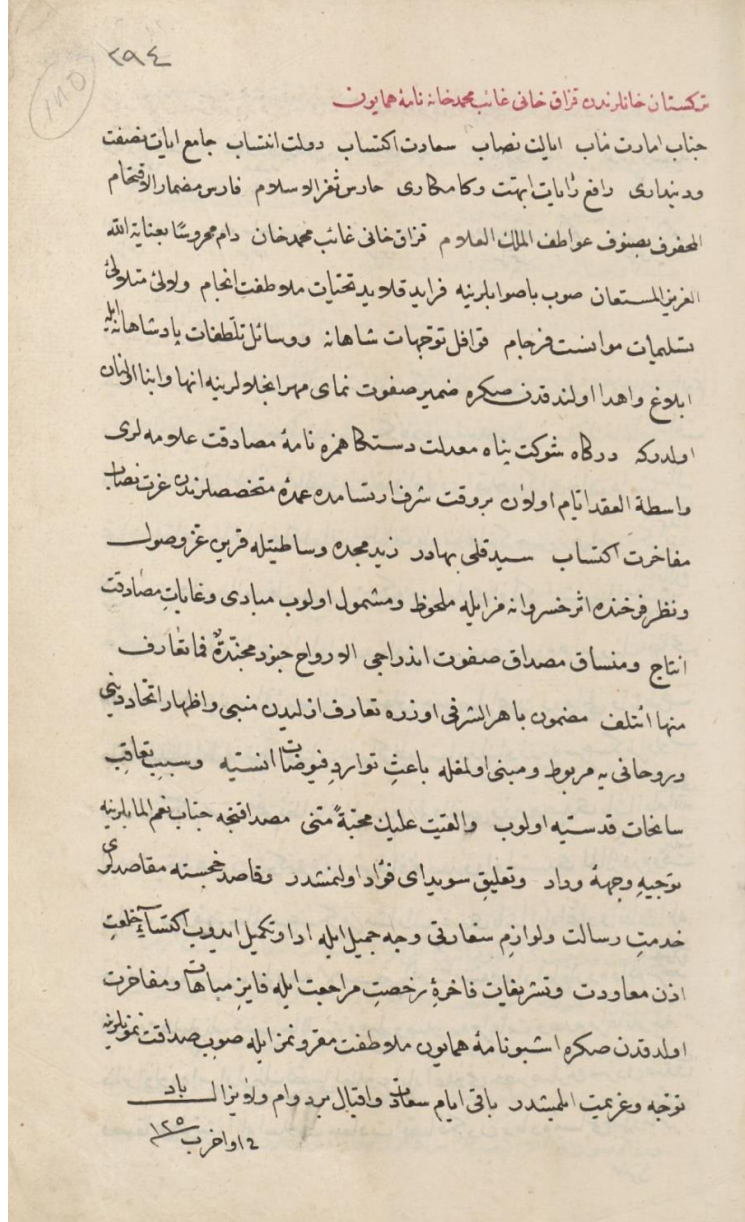 ٢٩٤
١٨٥
تركستان خانلرندن قزاق خانی غائب محمد خانه نامهٔ همایون
جناب امارت مآب ایالت نصاب سعادت اکتساب دولت انتساب جامع ایات نصفت
ودینداری رافع رایات ابهت وکامکاری حارس ثغر الاسلام فارس مضمار الاقتحام
المحفوف بصنوف عواطف الملك العلام قزاق خانی غائب محمد خان دام محروسًا بعنایة الله
العزیز المستعان صوب باصوابلرینه فراید قلاید تحیات ملاطفت انجام ولاولئ متلاولئ
تسلیمات موانست فرجام قوافل توجهات شاهانه ووسائل تلطفات پادشاهانه ایله
ابلاغ واهدا اولندقدن صکره ضمیر صفوت نمای مهر انجلالرینه انها وابنا
اولنورکه درکاه شوکت پناه معدلت دستکاهمزه نامهٔ مصادقت علامه لری
واسطة العقد ایام اولان بر وقت شرف ارتسامده عمدهٔ متخصصلرندن عزت نصاب
مفاخرت اکتساب سید قلی بهادر زید مجده وساطتیله قرین عز وصول
ونظر فرخنده اثر خسروانه مزایله ملحوظ ومشمول اولوب مبادی وغایات مصادقت
انتاج ومنساق مصداق صفوت اندراجی الارواح جنود مجندةٌ فما تعارف
منها ائتلف مضمون باهر الشرفی اوزره تعارف ازلیدن منبی واظهار اتحاد دینی
وروحانی یه مربوط ومبنی اولمغله باعثِ تواردِ فیوضات انسیه وسببِ تعاقبِ
سانحات قدسیه اولوب والقیت علیك محبةً منی مصداقنجه جناب نعم المابلرینه
توجیهِ وجههٔ وداد وتعلیقِ سویدای فؤاد اولنمشدر وقاصد خجسته مقاصدلری
خدمتِ رسالت ولوازمِ سفارتی وجه جمیل ایله ادا وتکمیل ایدوب اکتساءِ خلعتِ
اذن معاودت وتشریفات فاخرهٔ رخصتِ مراجعت ایله فایزِ مباهات ومفاخرت
اولدقدن صکره اشبو نامهٔ همایون ملاطفت مقرونمز ایله صوبِ صداقت نمونلرینه
توجه وعزیمت ایلمیشدر باقی ایام سعادت واقبال بر دوام ولا یزال باد
اواخر ب